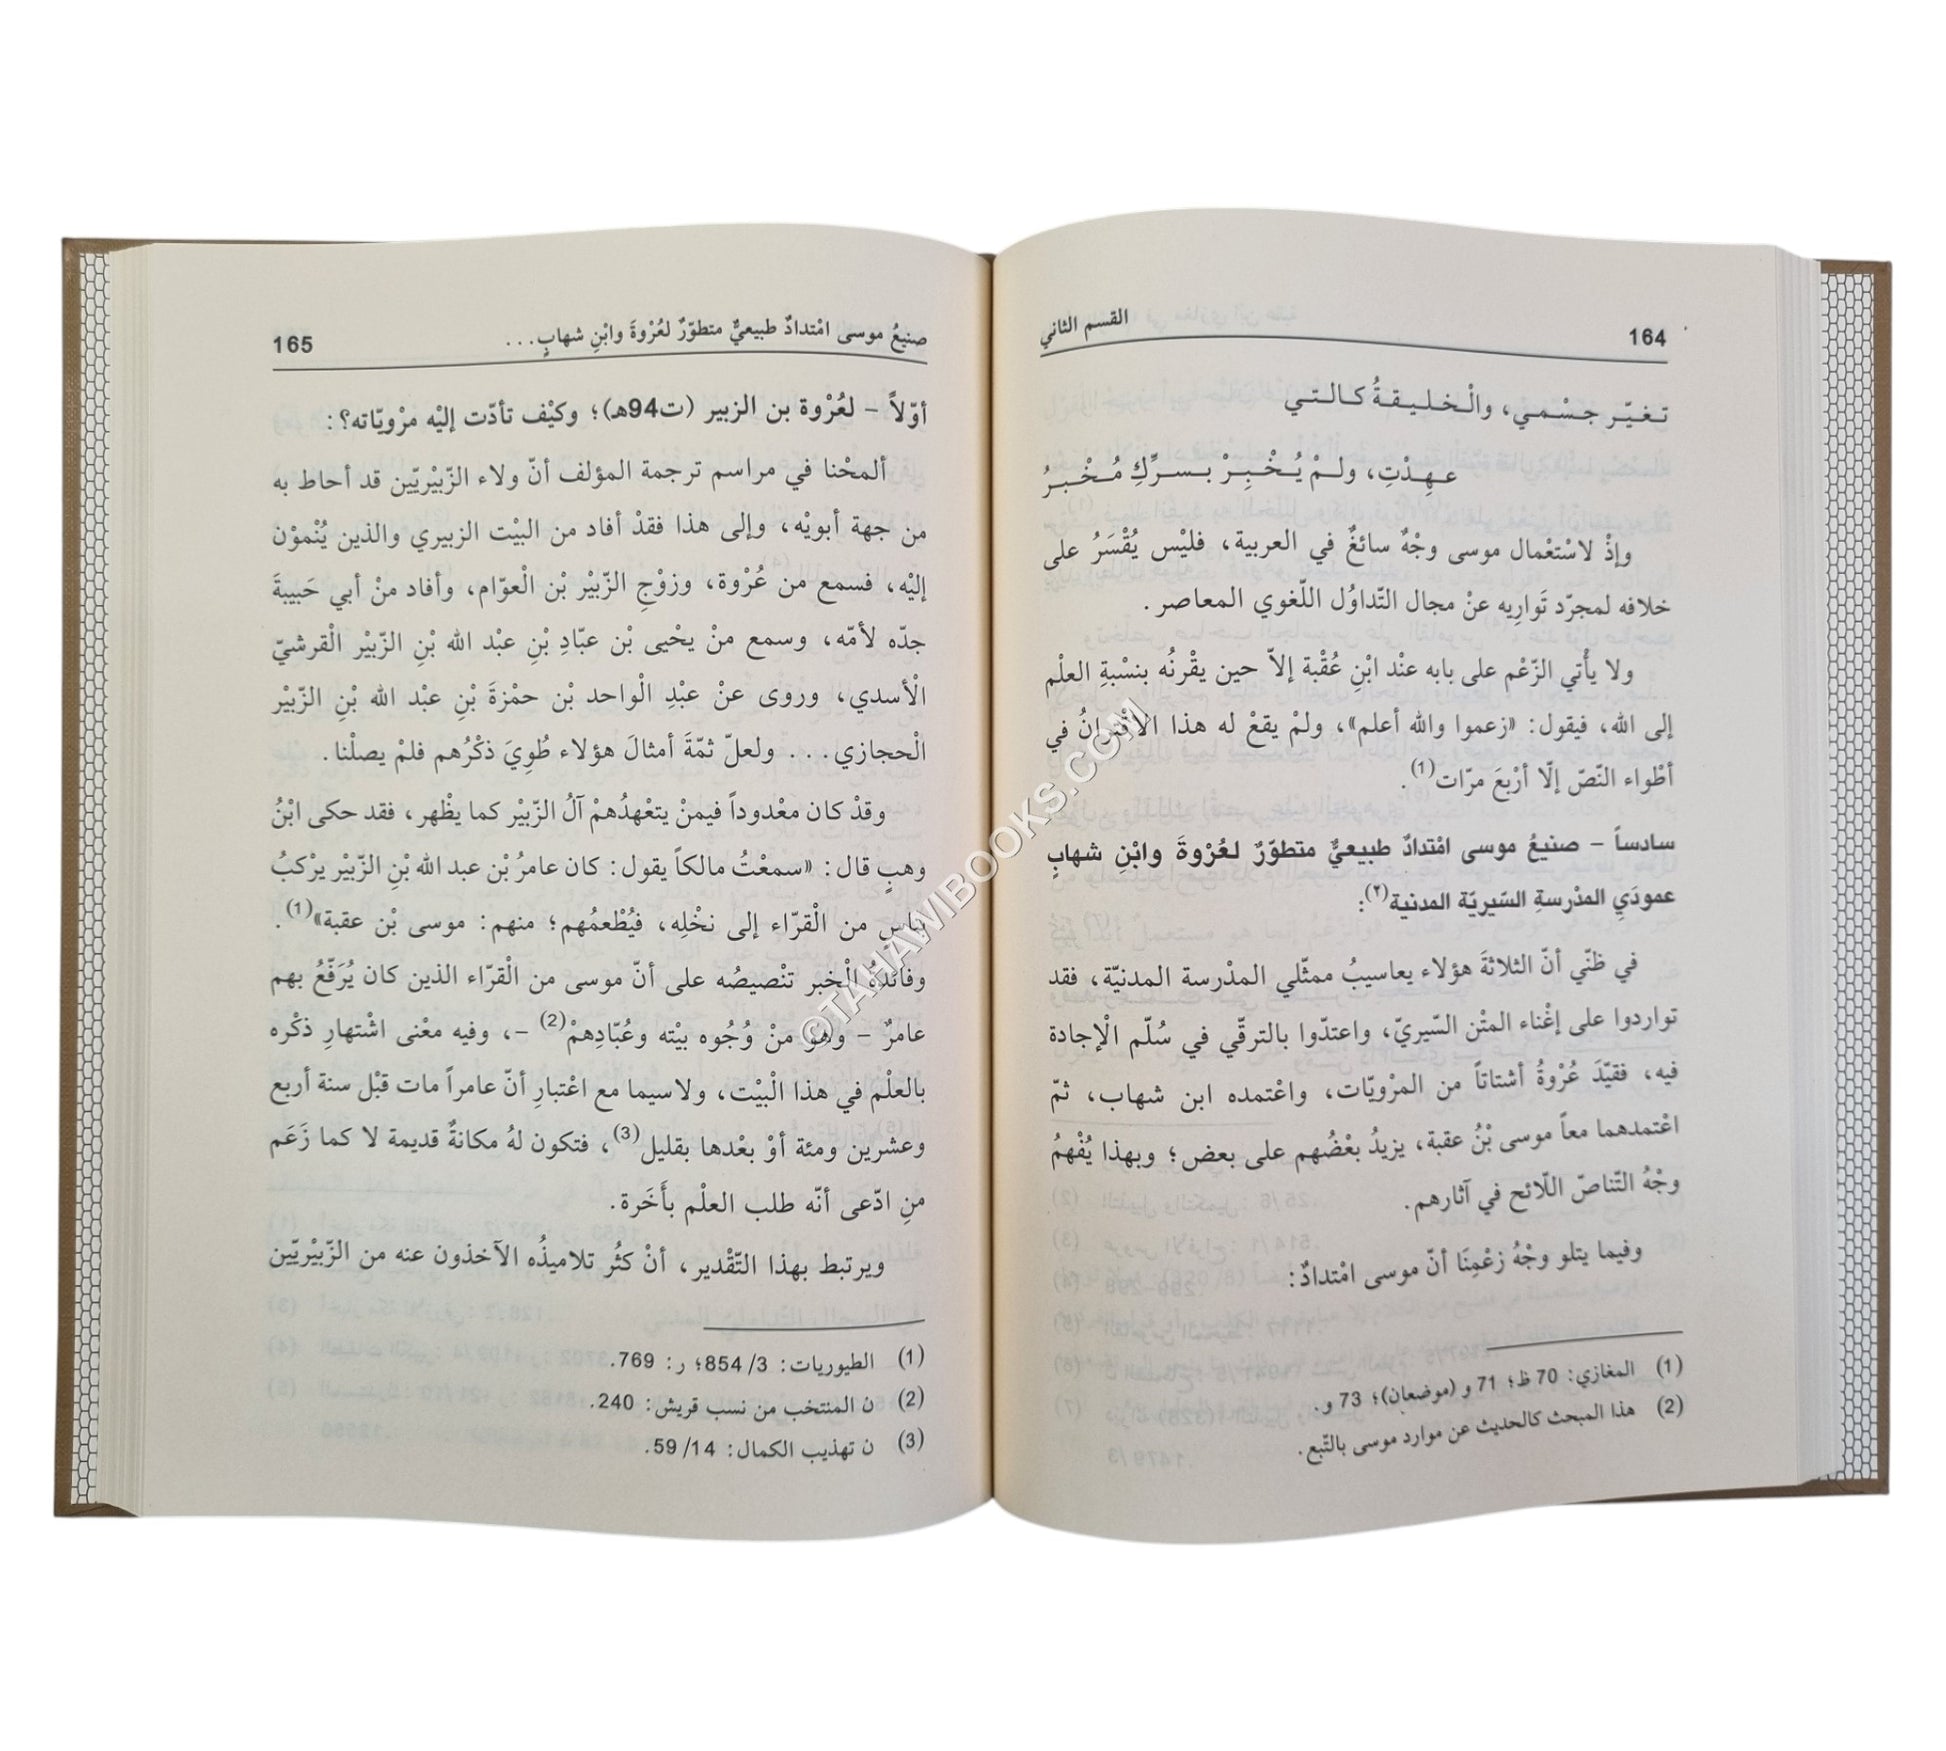 164 القسم الثاني
تـغـيّـر جـسْـمـي، والْـخـلـيـقـةُ كـالـتـي
عـهِـدْتِ، ولـمْ يُـخْـبِـرْ بـسـرِّكِ مُـخْـبـرُ
وإذْ لاسْتعْمال موسى وجْهٌ سائغٌ في العربية، فليْس يُقْسَرُ على
خلافه لمجرّد تَوارِيه عنْ مجال التّداوُل اللّغوي المعاصر.
ولا يأْتي الزّعْم على بابه عنْد ابْنِ عُقْبة إلاّ حين يقْرنُه بنسْبةِ العلْم
إلى الله، فيقول: «زعموا والله أعلم»، ولمْ يقعْ له هذا الاقْترانُ في
أطْواء النّصّ إلّا أرْبعَ مرّات(1).
سادساً - صنيعُ موسى امْتدادٌ طبيعيٌّ متطوّرٌ لعُرْوةَ وابْنِ شهابٍ
عمودَيِ المدْرسةِ السّيريّة المدنية(٢):
في ظنّي أنّ الثلاثةَ هؤلاء يعاسيبُ ممثّلي المدْرسة المدنيّة، فقد
تواردوا على إغْناء المتْن السّيريّ، واعتدّوا بالترقّي في سُلّم الْإجادة
فيه، فقيّدَ عُرْوةُ أشتاتاً من المرْويّات، واعْتمده ابن شهاب، ثمّ
اعْتمدهما معاً موسى بْنُ عقبة، يزيدُ بعْضُهم على بعض؛ وبهذا يُفْهمُ
وجْهُ التّناصّ اللّائح في آثارهم.
وفيما يتلو وجْهُ زعْمِنَا أنّ موسى امْتدادٌ:
(1) المغازي: 70 ظ؛ 71 و (موضعان)؛ 73 و.
(2) هذا المبحث كالحديث عن موارد موسى بالتّبع.
صنيعُ موسى امْتدادٌ طبيعيٌّ متطوّرٌ لعُرْوةَ وابْنِ شهابٍ... 165
أوّلاً - لعُرْوة بن الزبير (ت94هـ)؛ وكيْف تأدّت إليْه مرْويّاته؟:
ألمحْنا في مراسم ترجمة المؤلف أنّ ولاء الزّبيْريّين قد أحاط به
من جهة أبويْه، وإلى هذا فقدْ أفاد من البيْت الزبيري والذين يُنْموْن
إليْه، فسمع من عُرْوة، وزوْجِ الزّبيْر بْن الْعوّام، وأفاد منْ أبي حَبيبةَ
جدّه لأمّه، وسمع منْ يحْيى بْن عبّادِ بْنِ عبْد الله بْنِ الزّبيْر الْقرشيّ
الْأسدي، وروى عنْ عبْدِ الْواحد بْن حمْزةَ بْنِ عبْد الله بْنِ الزّبيْر
الْحجازي... ولعلّ ثمّةَ أمثالَ هؤلاء طُوِيَ ذكْرُهم فلمْ يصلْنا.
وقدْ كان معْدوداً فيمنْ يتعْهدُهمْ آلُ الزّبيْر كما يظْهر، فقد حكى ابْنُ
وهبٍ قال: «سمعْتُ مالكاً يقول: كان عامرُ بْن عبد الله بْنِ الزّبيْر يرْكبُ
بناسٍ من الْقرّاء إلى نخْلِه، فيُطْعمُهم؛ منهم: موسى بْن عقبة»(1).
وفائدةُ الْخبر تنْصيصُه على أنّ موسى من الْقرّاء الذين كان يُرَفّعُ بهم
عامرٌ - وهُو منْ وُجُوه بيْته وعُبّادِهمْ(2) -، وفيه معْنى اشْتهارِ ذكْره
بالعلْم في هذا الْبيْت، ولاسيما مع اعْتبارِ أنّ عامراً مات قبْل سنة أربع
وعشرين ومئة أوْ بعْدها بقليل(3)، فتكون لهُ مكانةٌ قديمة لا كما زَعَم
منِ ادّعى أنّه طلب العلْم بأَخَرة.
ويرتبط بهذا التّقْدير، أنْ كثُر تلاميذُه الآخذون عنه من الزّبيْريّين
(1) الطيوريات: 3/ 854؛ ر: 769.
(2) ن المنتخب من نسب قريش: 240.
(3) ن تهذيب الكمال: 14/ 59.
©TAHAWIBOOKS.COM